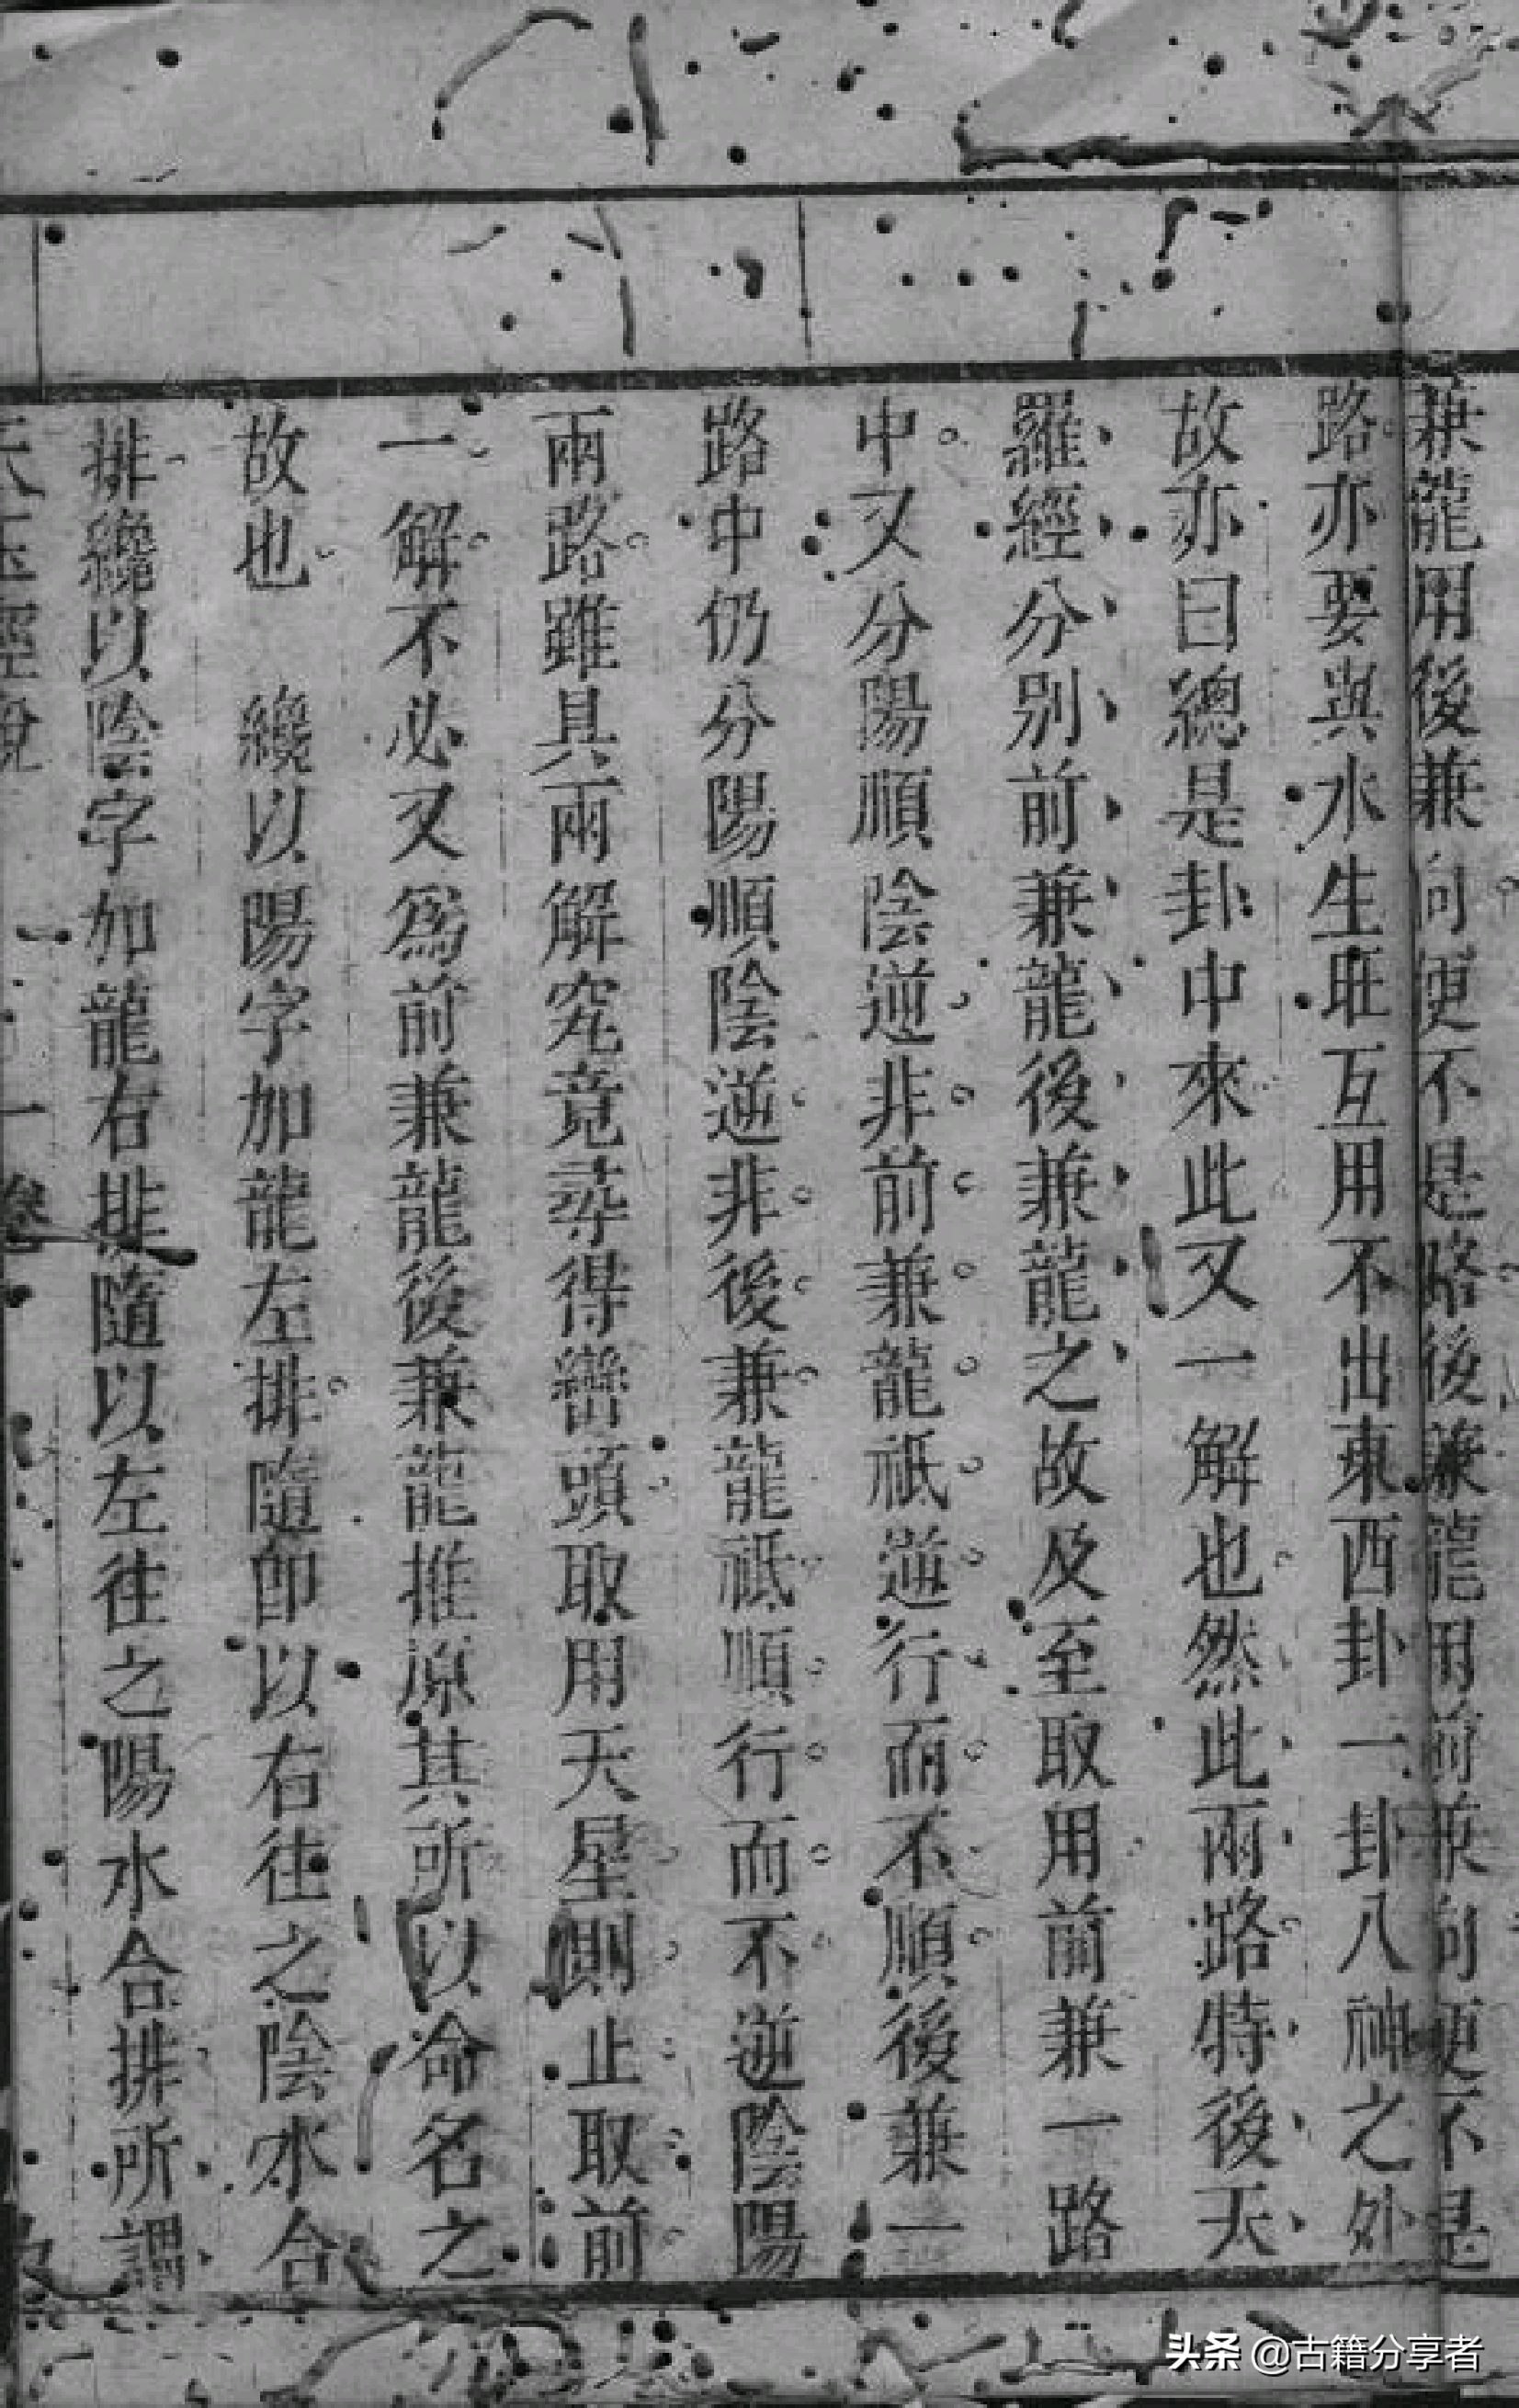 兼龍用後兼向便不是路後兼龍用前兼向便不是
路亦要與水生旺互用不出東西卦一卦八神之外
故亦曰總是卦中來此又一解也然此兩路特後天
羅經分別前兼龍後兼龍之故及至取用前兼一路
中又分陽順陰逆非前兼龍祇逆行而不順後兼一
路中仍分陽順陰逆非後兼龍祇順行而不逆陰陽
兩路雖具兩解究竟尋得巒頭取用天星側止取前
一解不必又爲前兼龍後兼龍推原其所以命名之
故也 纔以陽字加龍左排隨卽以右徃之陰水合
排纔以陰字加龍右排隨以左徃之陽水合排所謂
天玉經說 一卷
头条 @古籍分享者